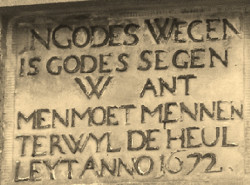 INGODES WEGEN
IS GODES SEGEN
W ANT
MENMOET MENNEN
TERWYL DE HEUL
LEYT ANNO 1672.